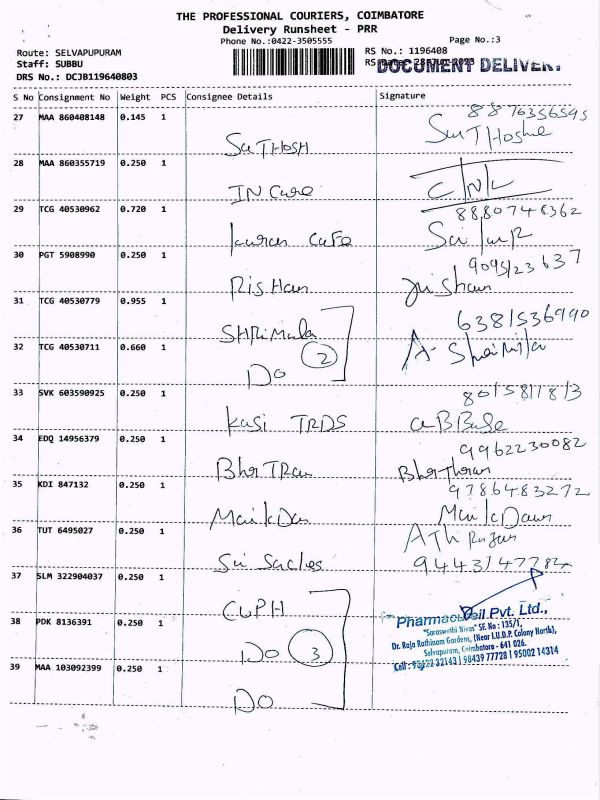 THE PROFESSIONAL COURIERS, COIMBATORE
Delivery Runsheet - PRR
Phone No.:0422-3505555
Page No.:3
Route: SELVAPUPURAM
Staff: SUBBU
DRS No.: DCJB119640803
RS No.: 1196408
DOCUMENT DELIVERY
S No Consignment No Weight PCS Consignee Details Signature
27 MAA 860408148 0.145 1
8876356595
SuTHOSH
28 MAA 860355719 0.250 1
IN Care C/N/L
29 TCG 40530962 0.720 1
8880748362
CaFe
30 PGT 5908990 0.250 1
9095123637
RisHan
31 TCG 40530779 0.955 1
6381536990
SHRiMala
32 TCG 40530711 0.660 1
2
Do
33 SVK 603590925 0.250 1
8015811813
Kasi TRDS
34 EDQ 14956379 0.250 1
9962230082
35 KDI 847132 0.250 1
9786483272
36 TUT 6495027 0.250 1
9443147782
37 SLM 322904037 0.250 1
CUPH
38 PDK 8136391 0.250 1
Do 3
39 MAA 103092399 0.250 1
Do
Pvt. Ltd.,
"Saraswathi Nivas" SF. No : 135/1,
Dr. Raja Rathinam Gardens, (Near L.U.D.P. Colony North),
Selvapuram, Coimbatore - 641 026.
Cell : 98422 32143 | 98439 77728 | 95002 14314